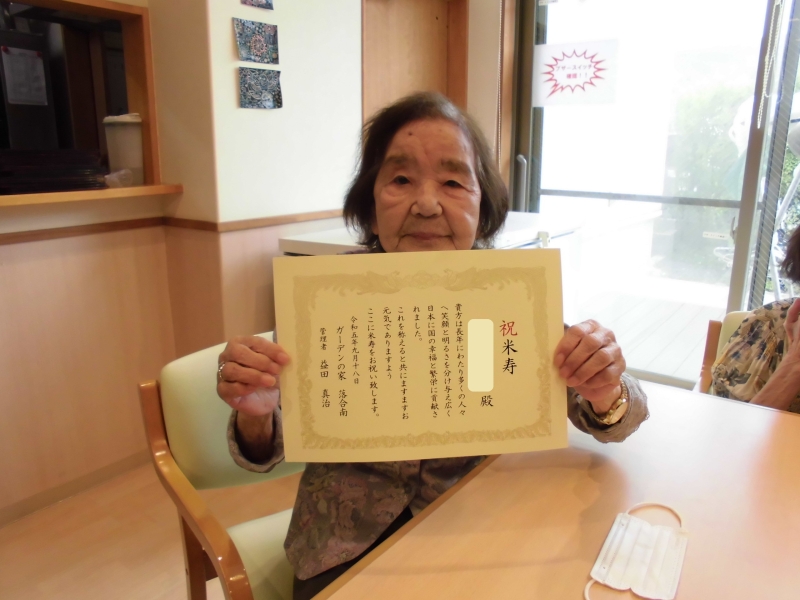 祝 米寿
殿
貴方は長年にわたり多くの人々
へ笑顔と明るさを分け与え広く
日本に国の幸福と繁栄に貢献さ
れました。
これを称えると共にますますお
元気でありますよう
ここに米寿をお祝い致します。
令和五年九月十八日
ガーデンの家 落合南
管理者 益田 真治